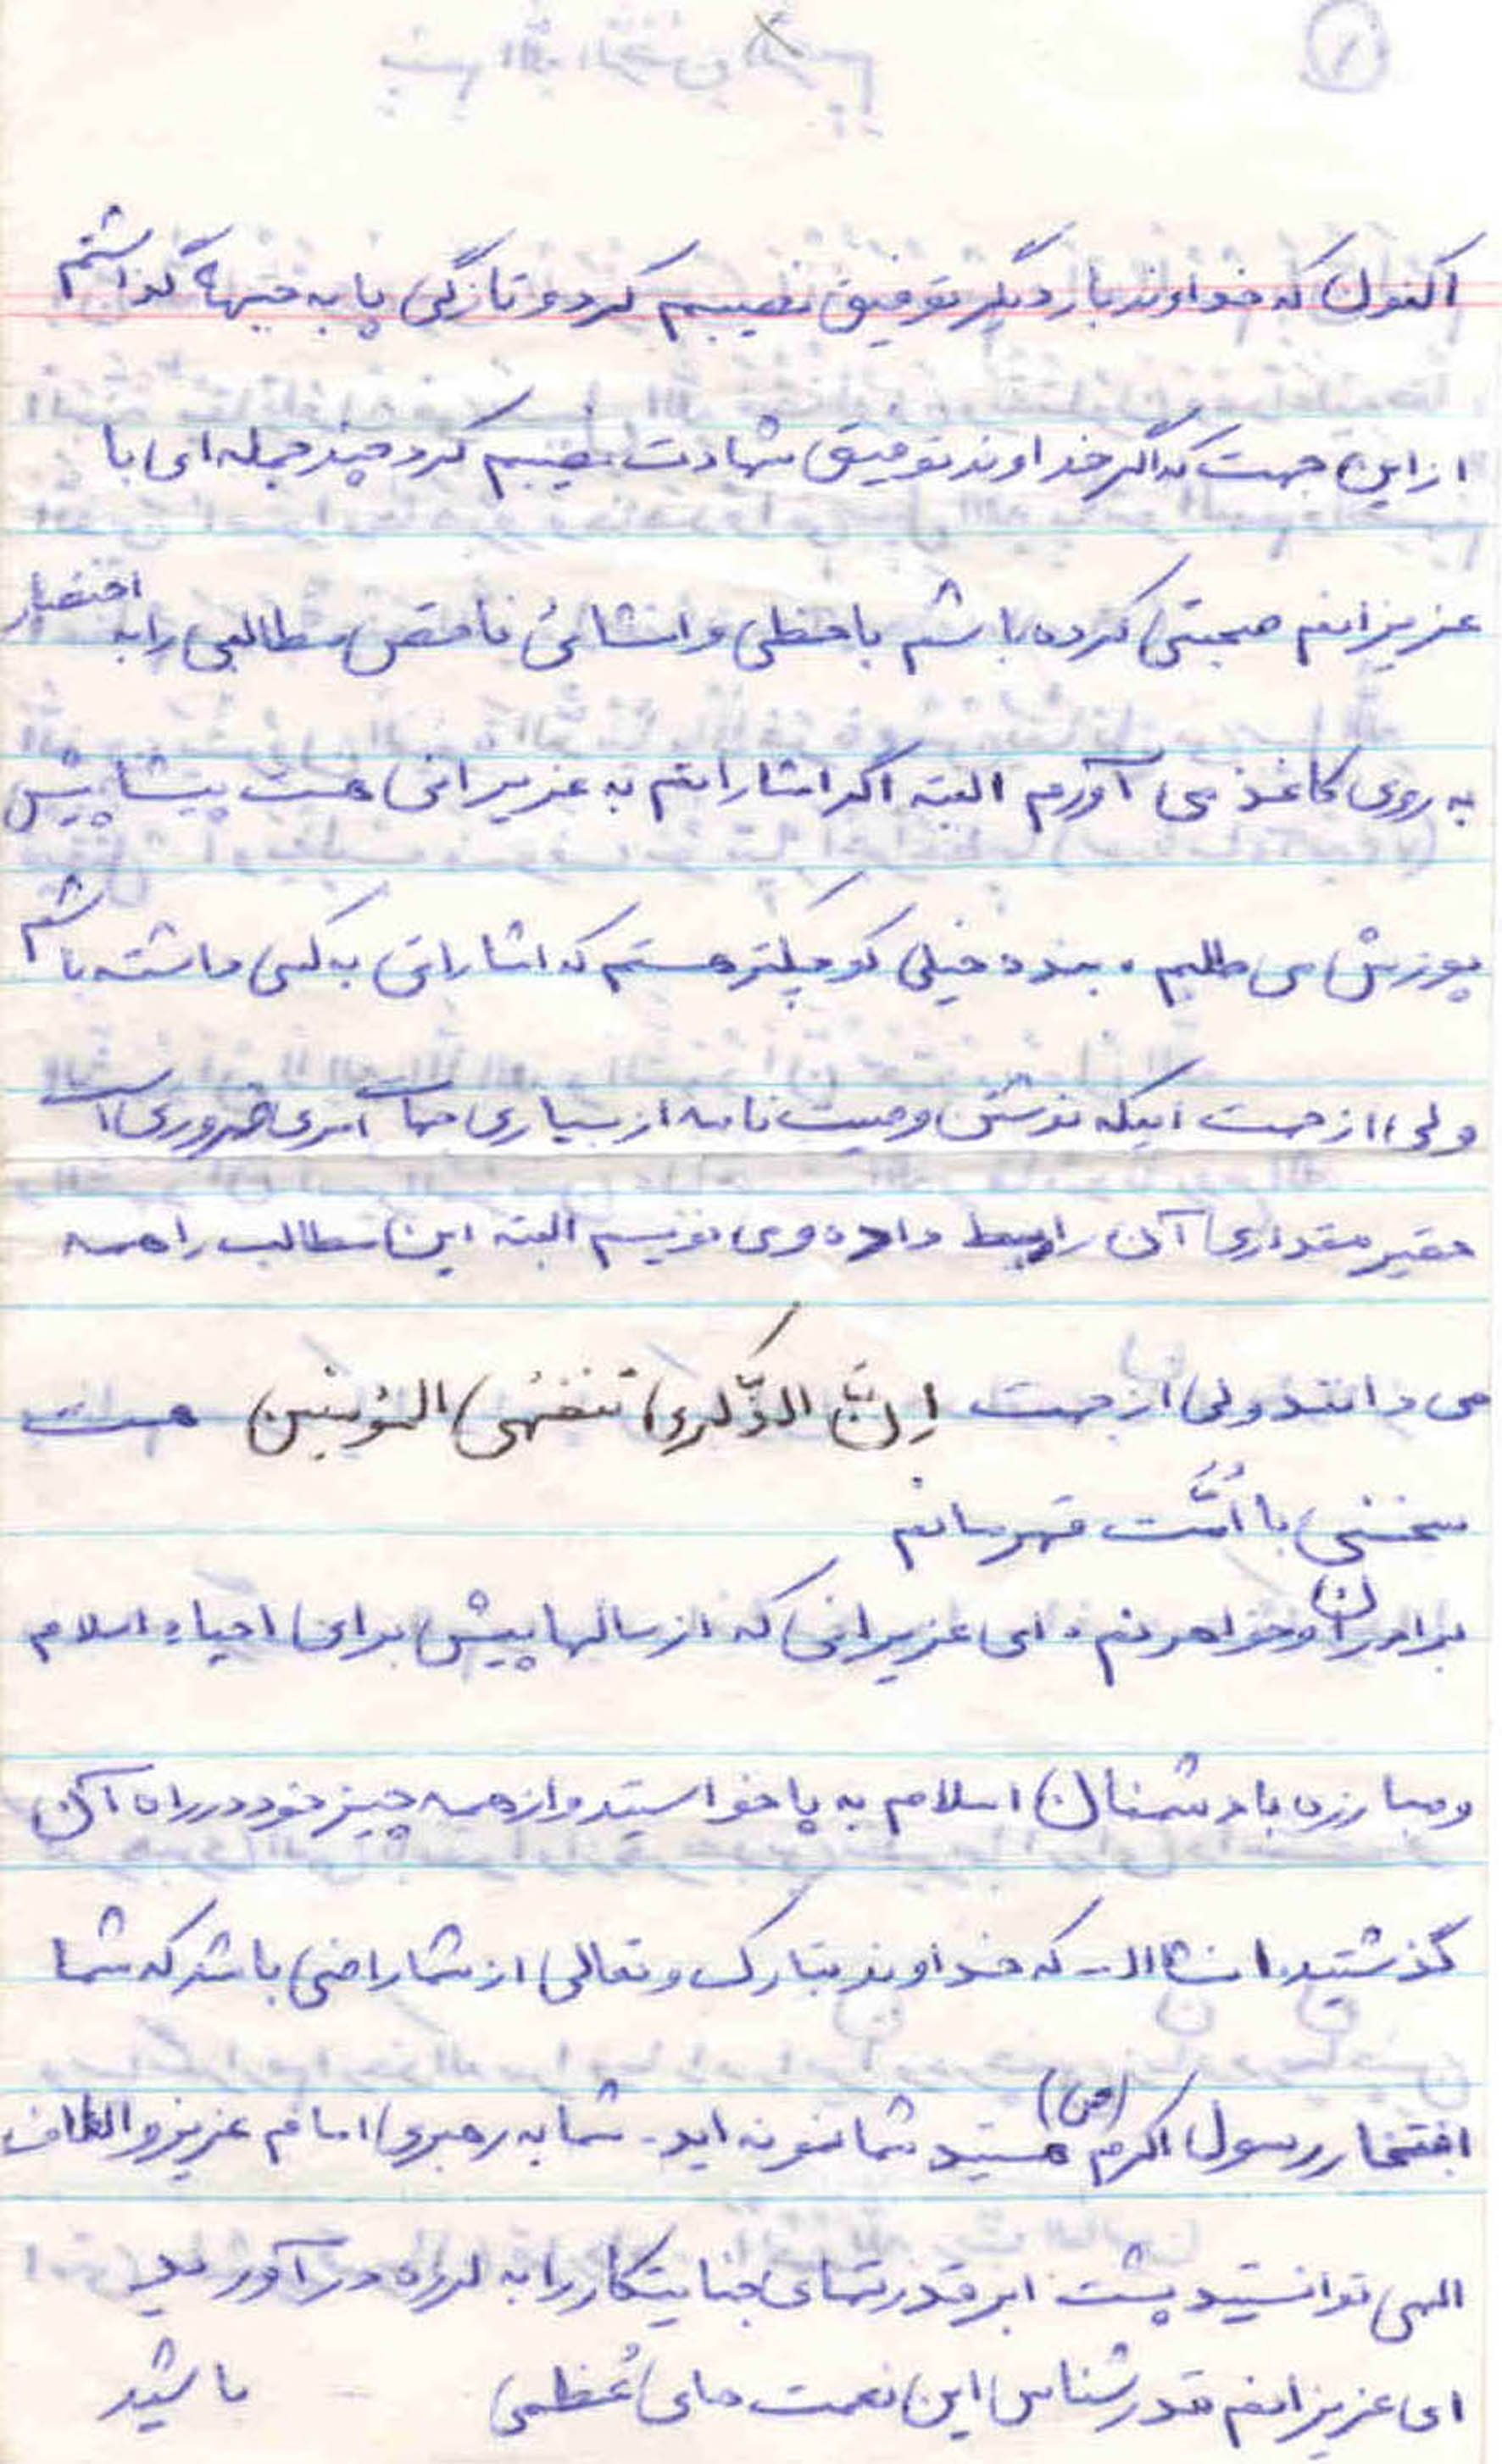 اکنون که خداوند بار دیگر توفیق نصیبم کرد و تازگی پا به جبهه گذاشتم
از این جهت که اگر خداوند توفیق شهادت نصیبم کرد چند جمله ای با
عزیزانم صحبتی کرده باشم با خطی و انشائی ناقص مطالبی را به اختصار
به روی کاغذ می آورم البته اگر اشاراتم به عزیزانی هست پیشاپیش
پوزش می طلبم. بنده خیلی کوچکتر هستم که اشاراتی به کسی داشته باشم
ولی از جهت اینکه نوشتن وصیت نامه از بسیاری جهات امری ضروری است
حقیر مقداری آن را بسط داده و می نویسم البته این مطالب را همه
می دانند ولی از جهت اِنَّ الذِّکری تنفَعُ المؤمنین هست
سخنی با اُمَّت قهرمانم
برادران و خواهرنم. ای عزیزانی که از سالها پیش برای احیاء اسلام
و مبارزه با دشمنان اسلام به پا خواستید و از همه چیز خود در راه آن
گذشتید. انشاالـ.. که خداوند تبارک و تعالی از شما راضی باشد که شما
افتخار رسول اکرم (ص) هستید شما نمونه اید. شما به رهبری امام عزیز و الطاف
الهی توانستید پشت ابر قدرتهای جنایتکار را به لرزه در آورید
ای عزیزانم قدر شناس این نعمت های عُظمی باشید